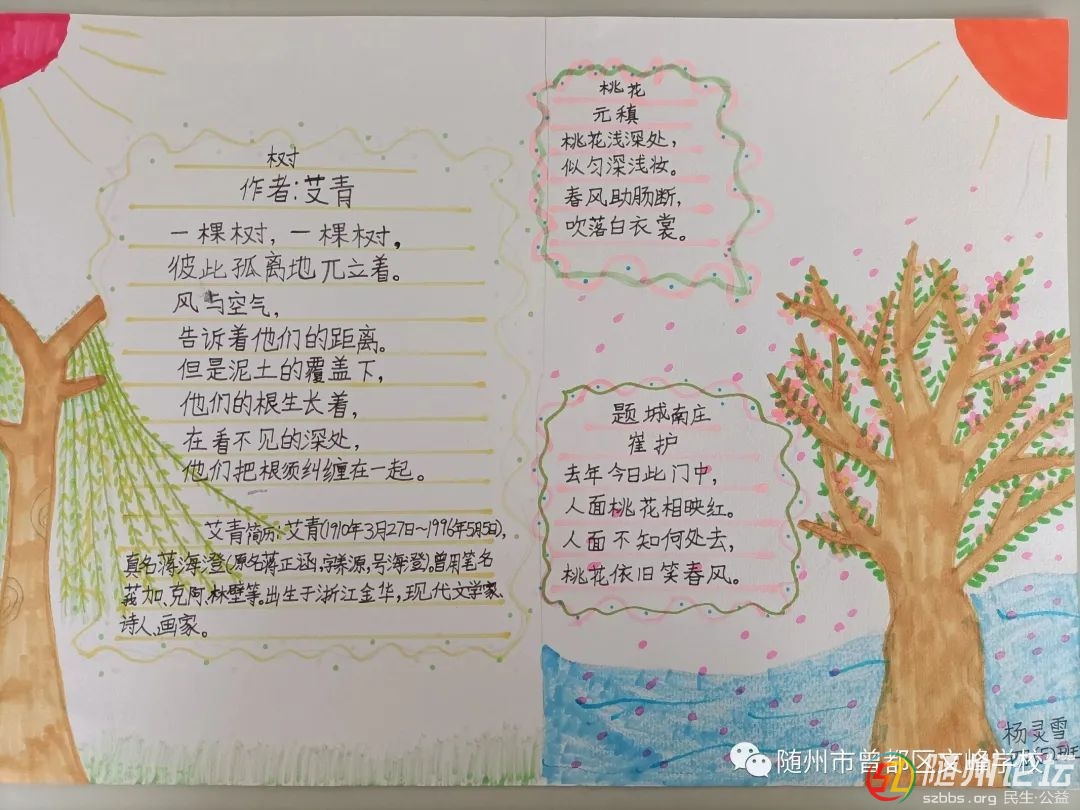 树
作者:艾青
一棵树，一棵树，
彼此孤离地兀立着。
风与空气，
告诉着他们的距离。
但是泥土的覆盖下，
他们的根生长着，
在看不见的深处，
他们把根须纠缠在一起。
艾青简历:艾青(1910年3月27日～1996年5月5日),
真名蒋海澄(原名蒋正涵,字养源,号海澄)。曾用笔名
莪加、克阿、林壁等。出生于浙江金华，现代文学家、
诗人、画家。
桃花
元稹
桃花浅深处，
似匀深浅妆。
春风助肠断，
吹落白衣裳。
题城南庄
崔护
去年今日此门中，
人面桃花相映红。
人面不知何处去，
桃花依旧笑春风。
杨灵雪
班
随州市曾都区文峰学校
随州论坛
szbbs.org 民生·公益